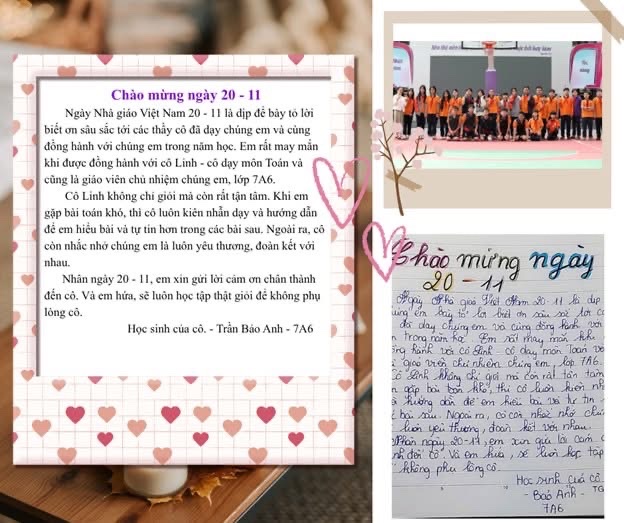 Chào mừng ngày 20 - 11
Ngày Nhà giáo Việt Nam 20 - 11 là dịp để bày tỏ lời
biết ơn sâu sắc tới các thầy cô đã dạy chúng em và cùng
đồng hành với chúng em trong năm học. Em rất may mắn
khi được đồng hành với cô Linh - cô dạy môn Toán và
cũng là giáo viên chủ nhiệm chúng em, lớp 7A6.
Cô Linh không chỉ giỏi mà còn rất tận tâm. Khi em
gặp bài toán khó, thì cô luôn kiên nhẫn dạy và hướng dẫn
để em hiểu bài và tự tin hơn trong các bài sau. Ngoài ra, cô
còn nhắc nhở chúng em là luôn yêu thương, đoàn kết với
nhau.
Nhân ngày 20 - 11, em xin gửi lời cảm ơn chân thành
đến cô. Và em hứa, sẽ luôn học tập thật giỏi để không phụ
lòng cô.
Học sinh của cô. - Trần Bảo Anh - 7A6
Chào mừng ngày
20 - 11
Ngày Nhà giáo Việt Nam 20-11 là dịp
em bày tỏ lời biết ơn sâu sắc tới cá
đã dạy chúng em và cùng đồng hành với
m trong năm học. Em rất may mắn khi
hành với cô Linh - cô dạy môn Toán và
giáo viên chủ nhiệm chúng em, lớp 7A6.
Cô Linh không chỉ giỏi mà còn rất tận tâm
em gặp bài toán khó, thì cô luôn kiên nh
hướng dẫn để em hiểu bài và tự tin
bài sau. Ngoài ra, cô còn nhắc nhở chú
luôn yêu thương, đoàn kết với nhau.
Nhân ngày 20-11, em xin gửi lời cảm ơ
đến cô. Và em hứa, sẽ luôn học tập
không phụ lòng cô.
Học sinh của cô
- Bảo Anh -
7A6